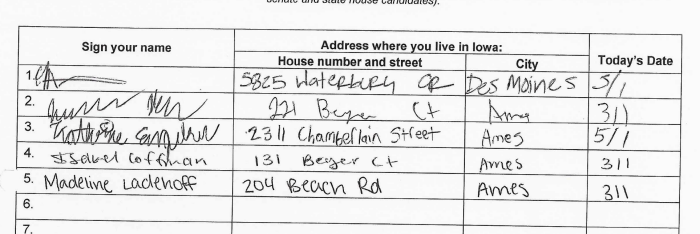 senate and state house candidates).
Sign your name Address where you live in Iowa: Today's Date
House number and street City
1. 5825 Waterbury CR Des Moines 5/1
2. 221 Beyer Ct Ames 3/1
3. Katherine 2311 Chamberlain Street Ames 5/1
4. Isabel Coffman 131 Beyer Ct Ames 3/1
5. Madeline Ladehoff 204 Beach Rd Ames 3/1
6.
7.